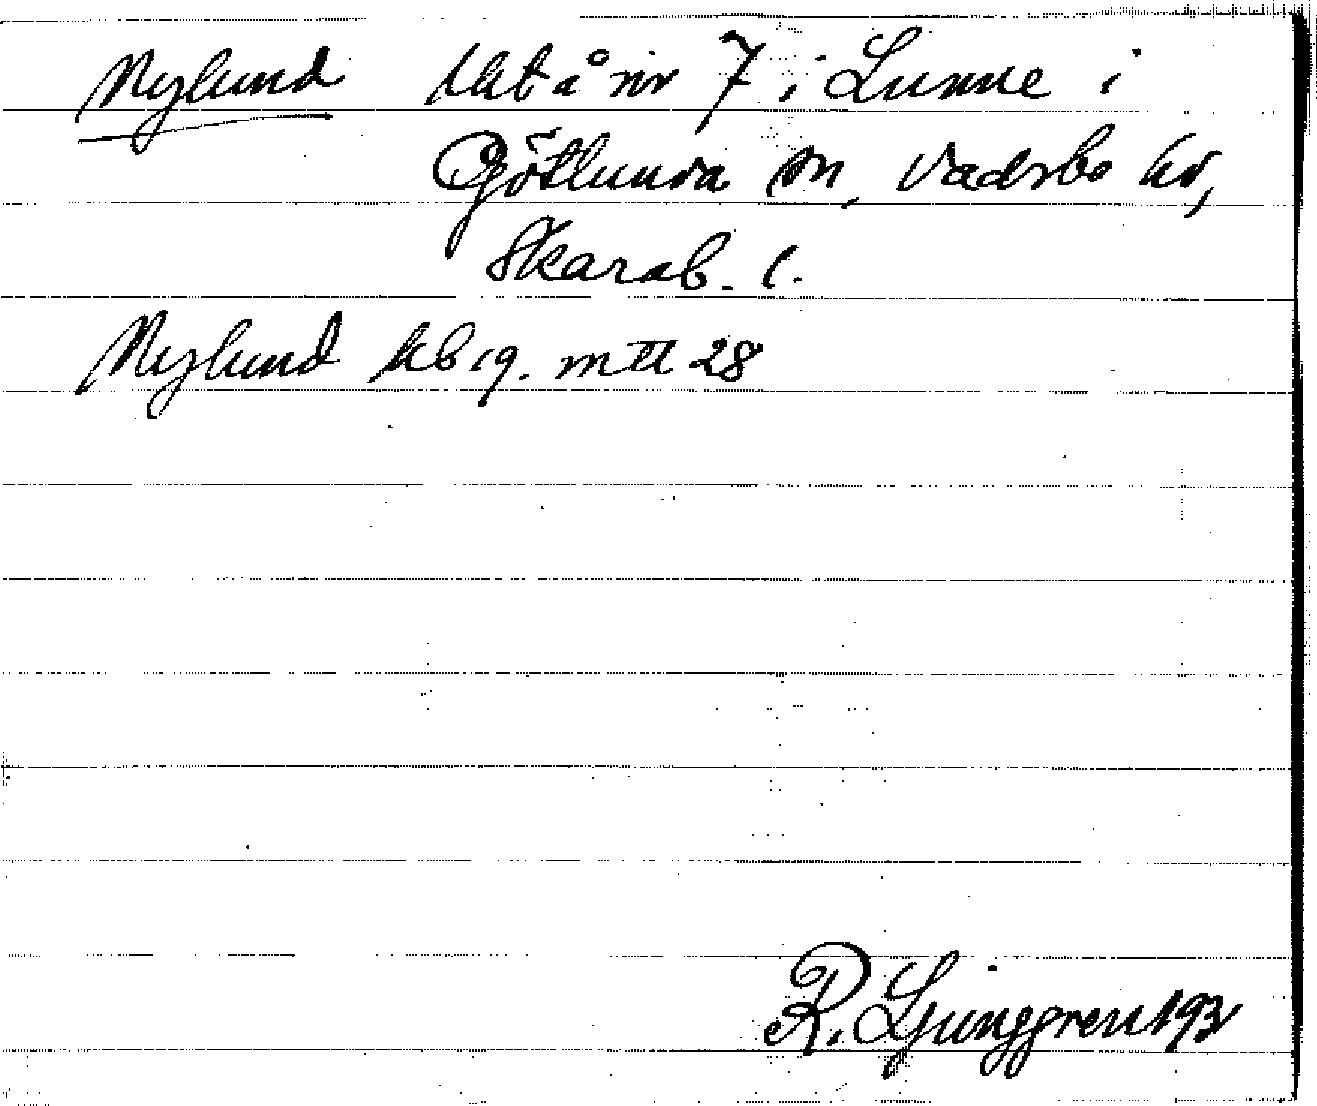 Nylund lht å nr 7 i Lunne i
Götlunda sn, Vadsbo hd,
Skarab. l.
Nylund kb 19. mtl 28
R. Ljunggren 193